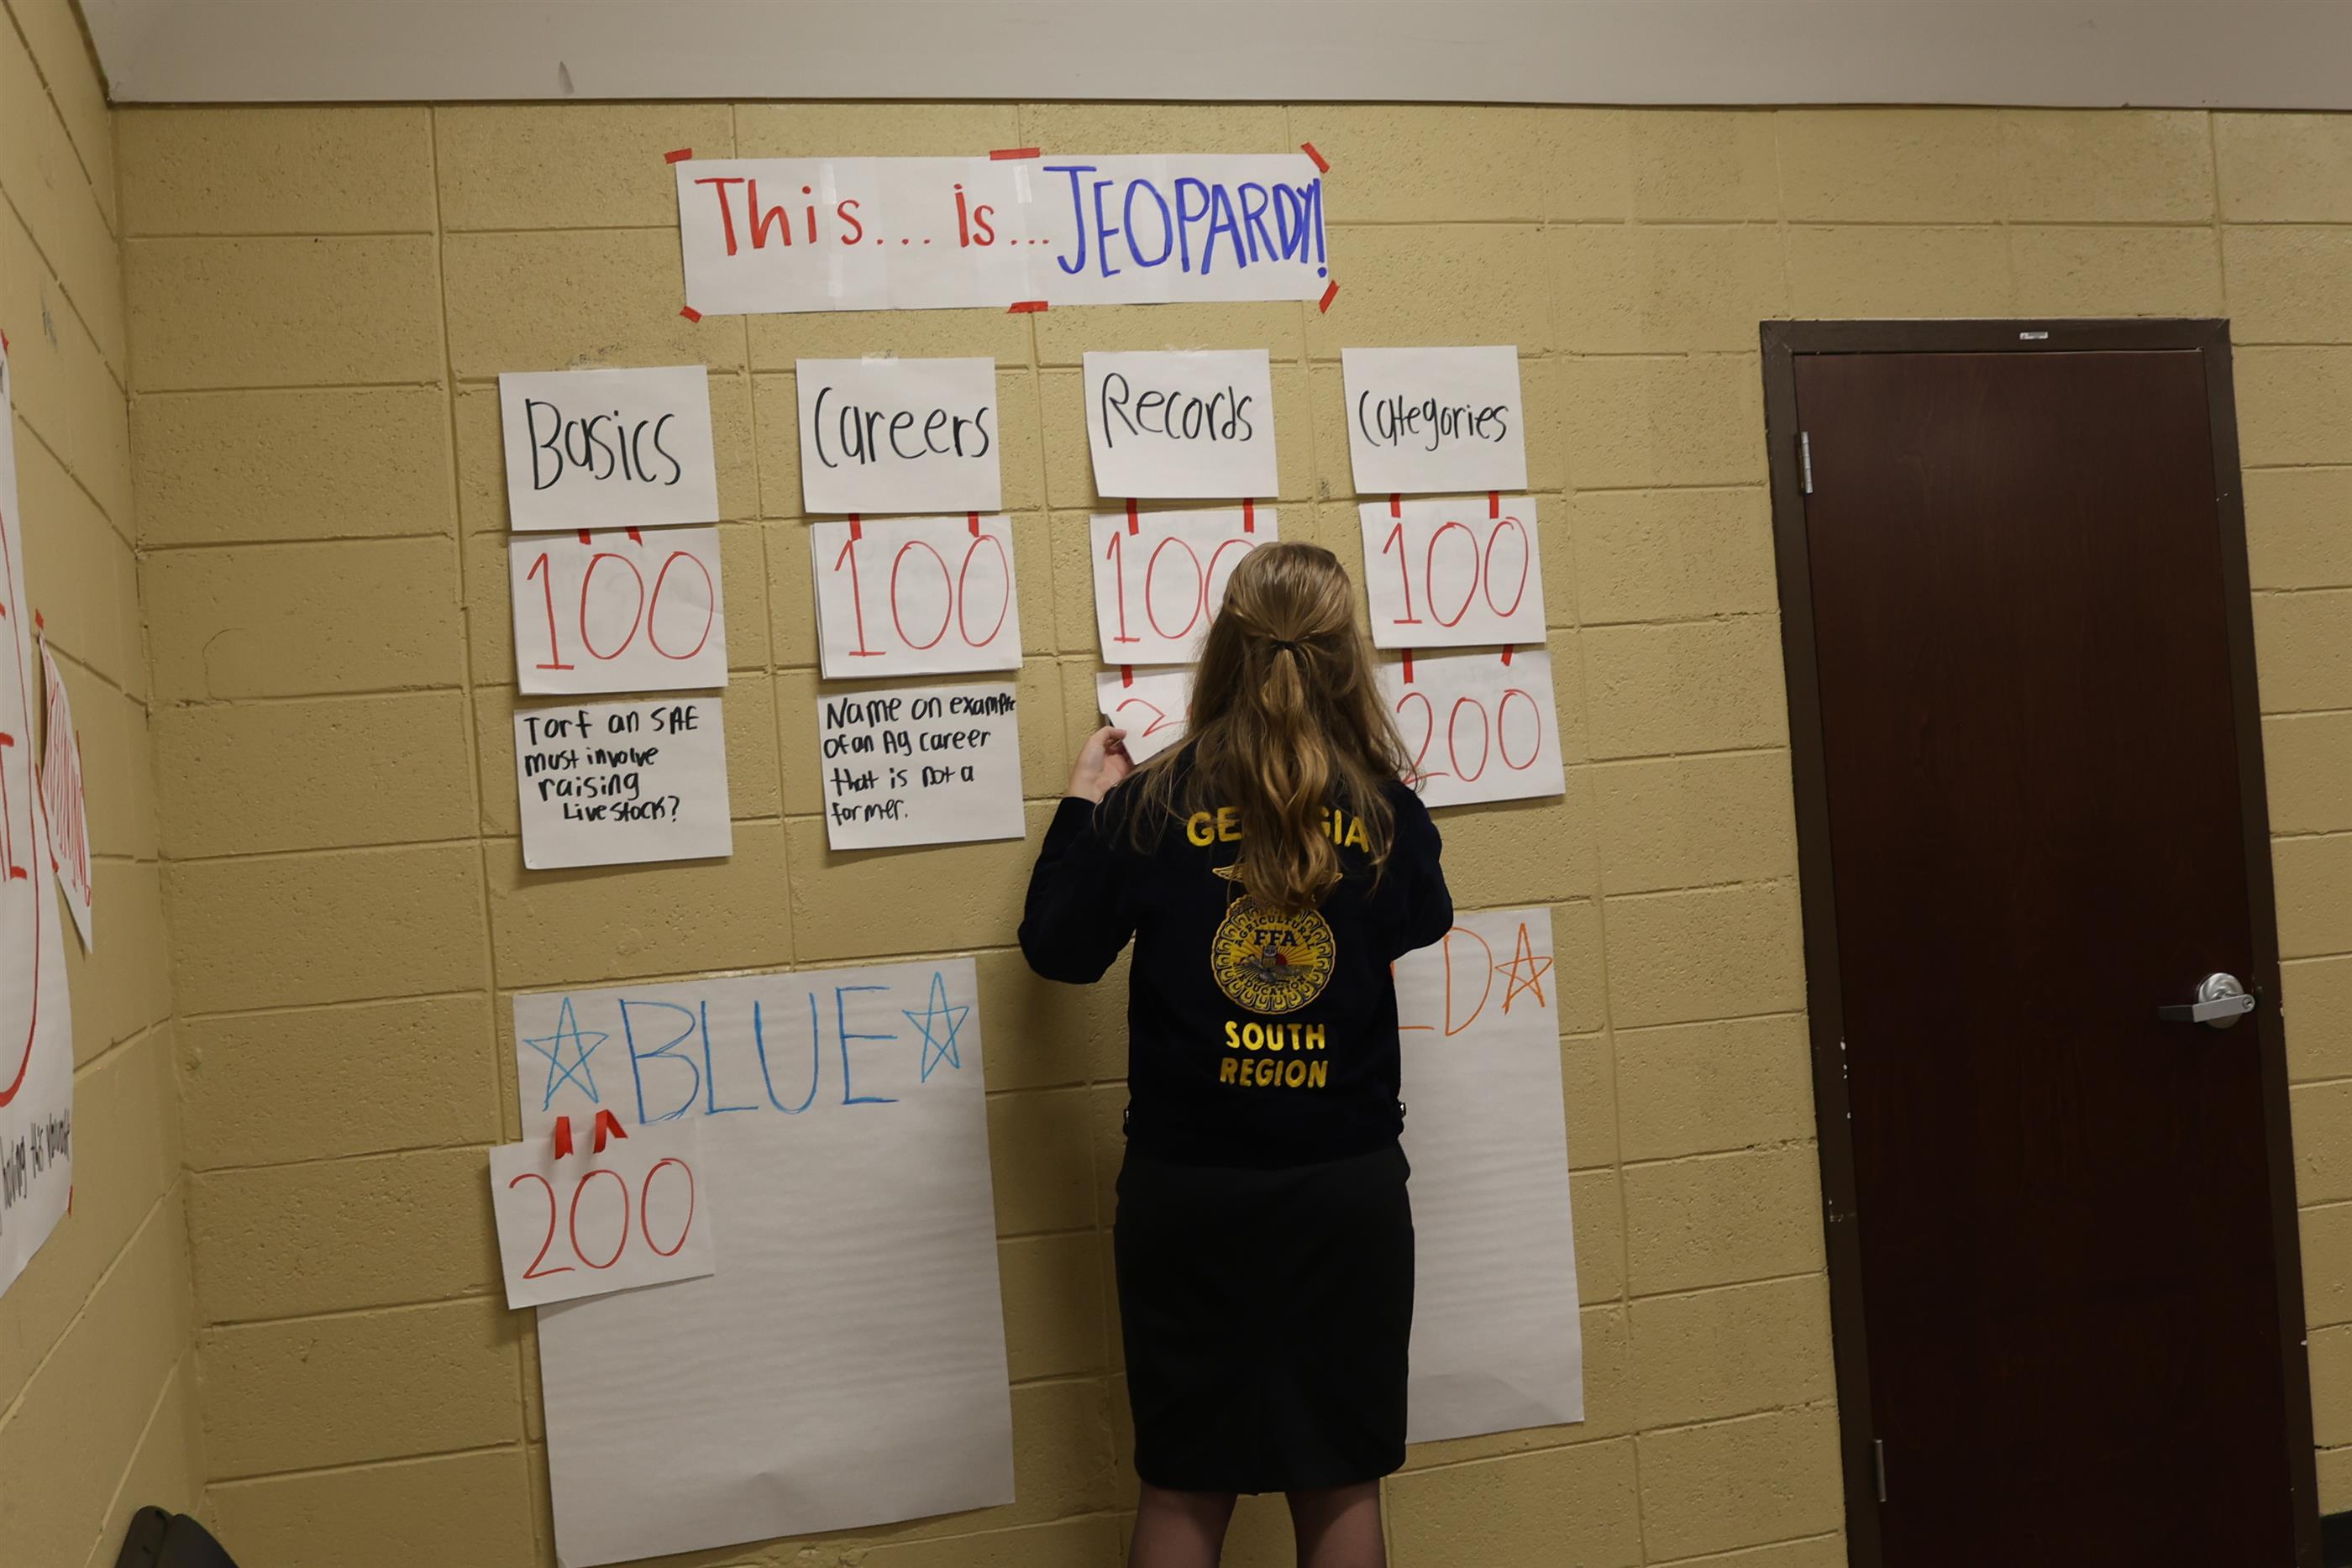 This... is... JEOPARDY!
Basics
Careers
Records
Categories
100
100
100
100
200
TorF an SAE
must involve
raising
Livestock?
Name an example
of an Ag career
that is not a
farmer.
GEORGIA
AGRICULTURAL
FFA
EDUCATION
SOUTH
REGION
BLUE
LD
200
having this